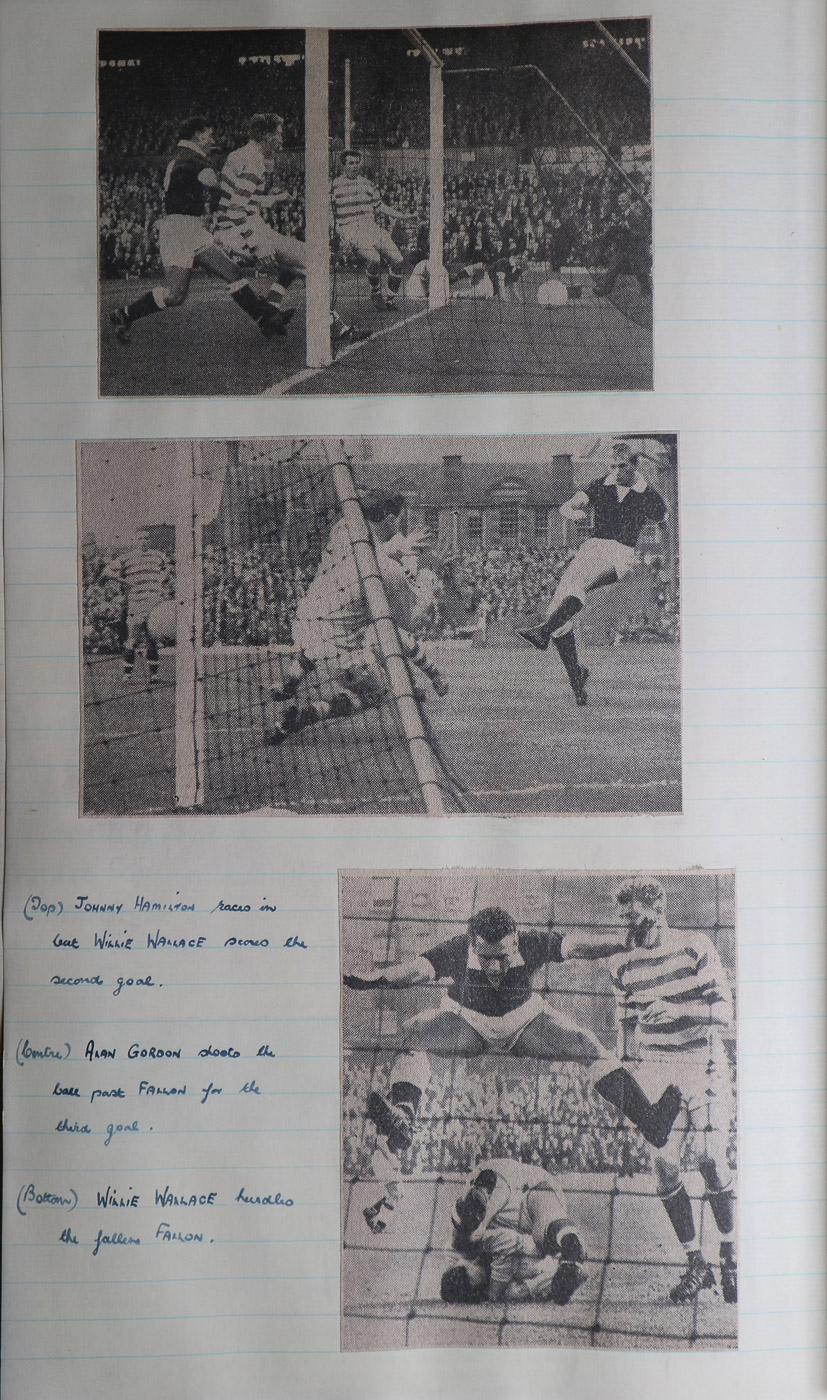 (Top) JOHNNY HAMILTON races in
but WILLIE WALLACE scores the
second goal.
(Centre) ALAN GORDON shoots the
ball past FALLON for the
third goal.
(Bottom) WILLIE WALLACE hurdles
the fallen FALLON.